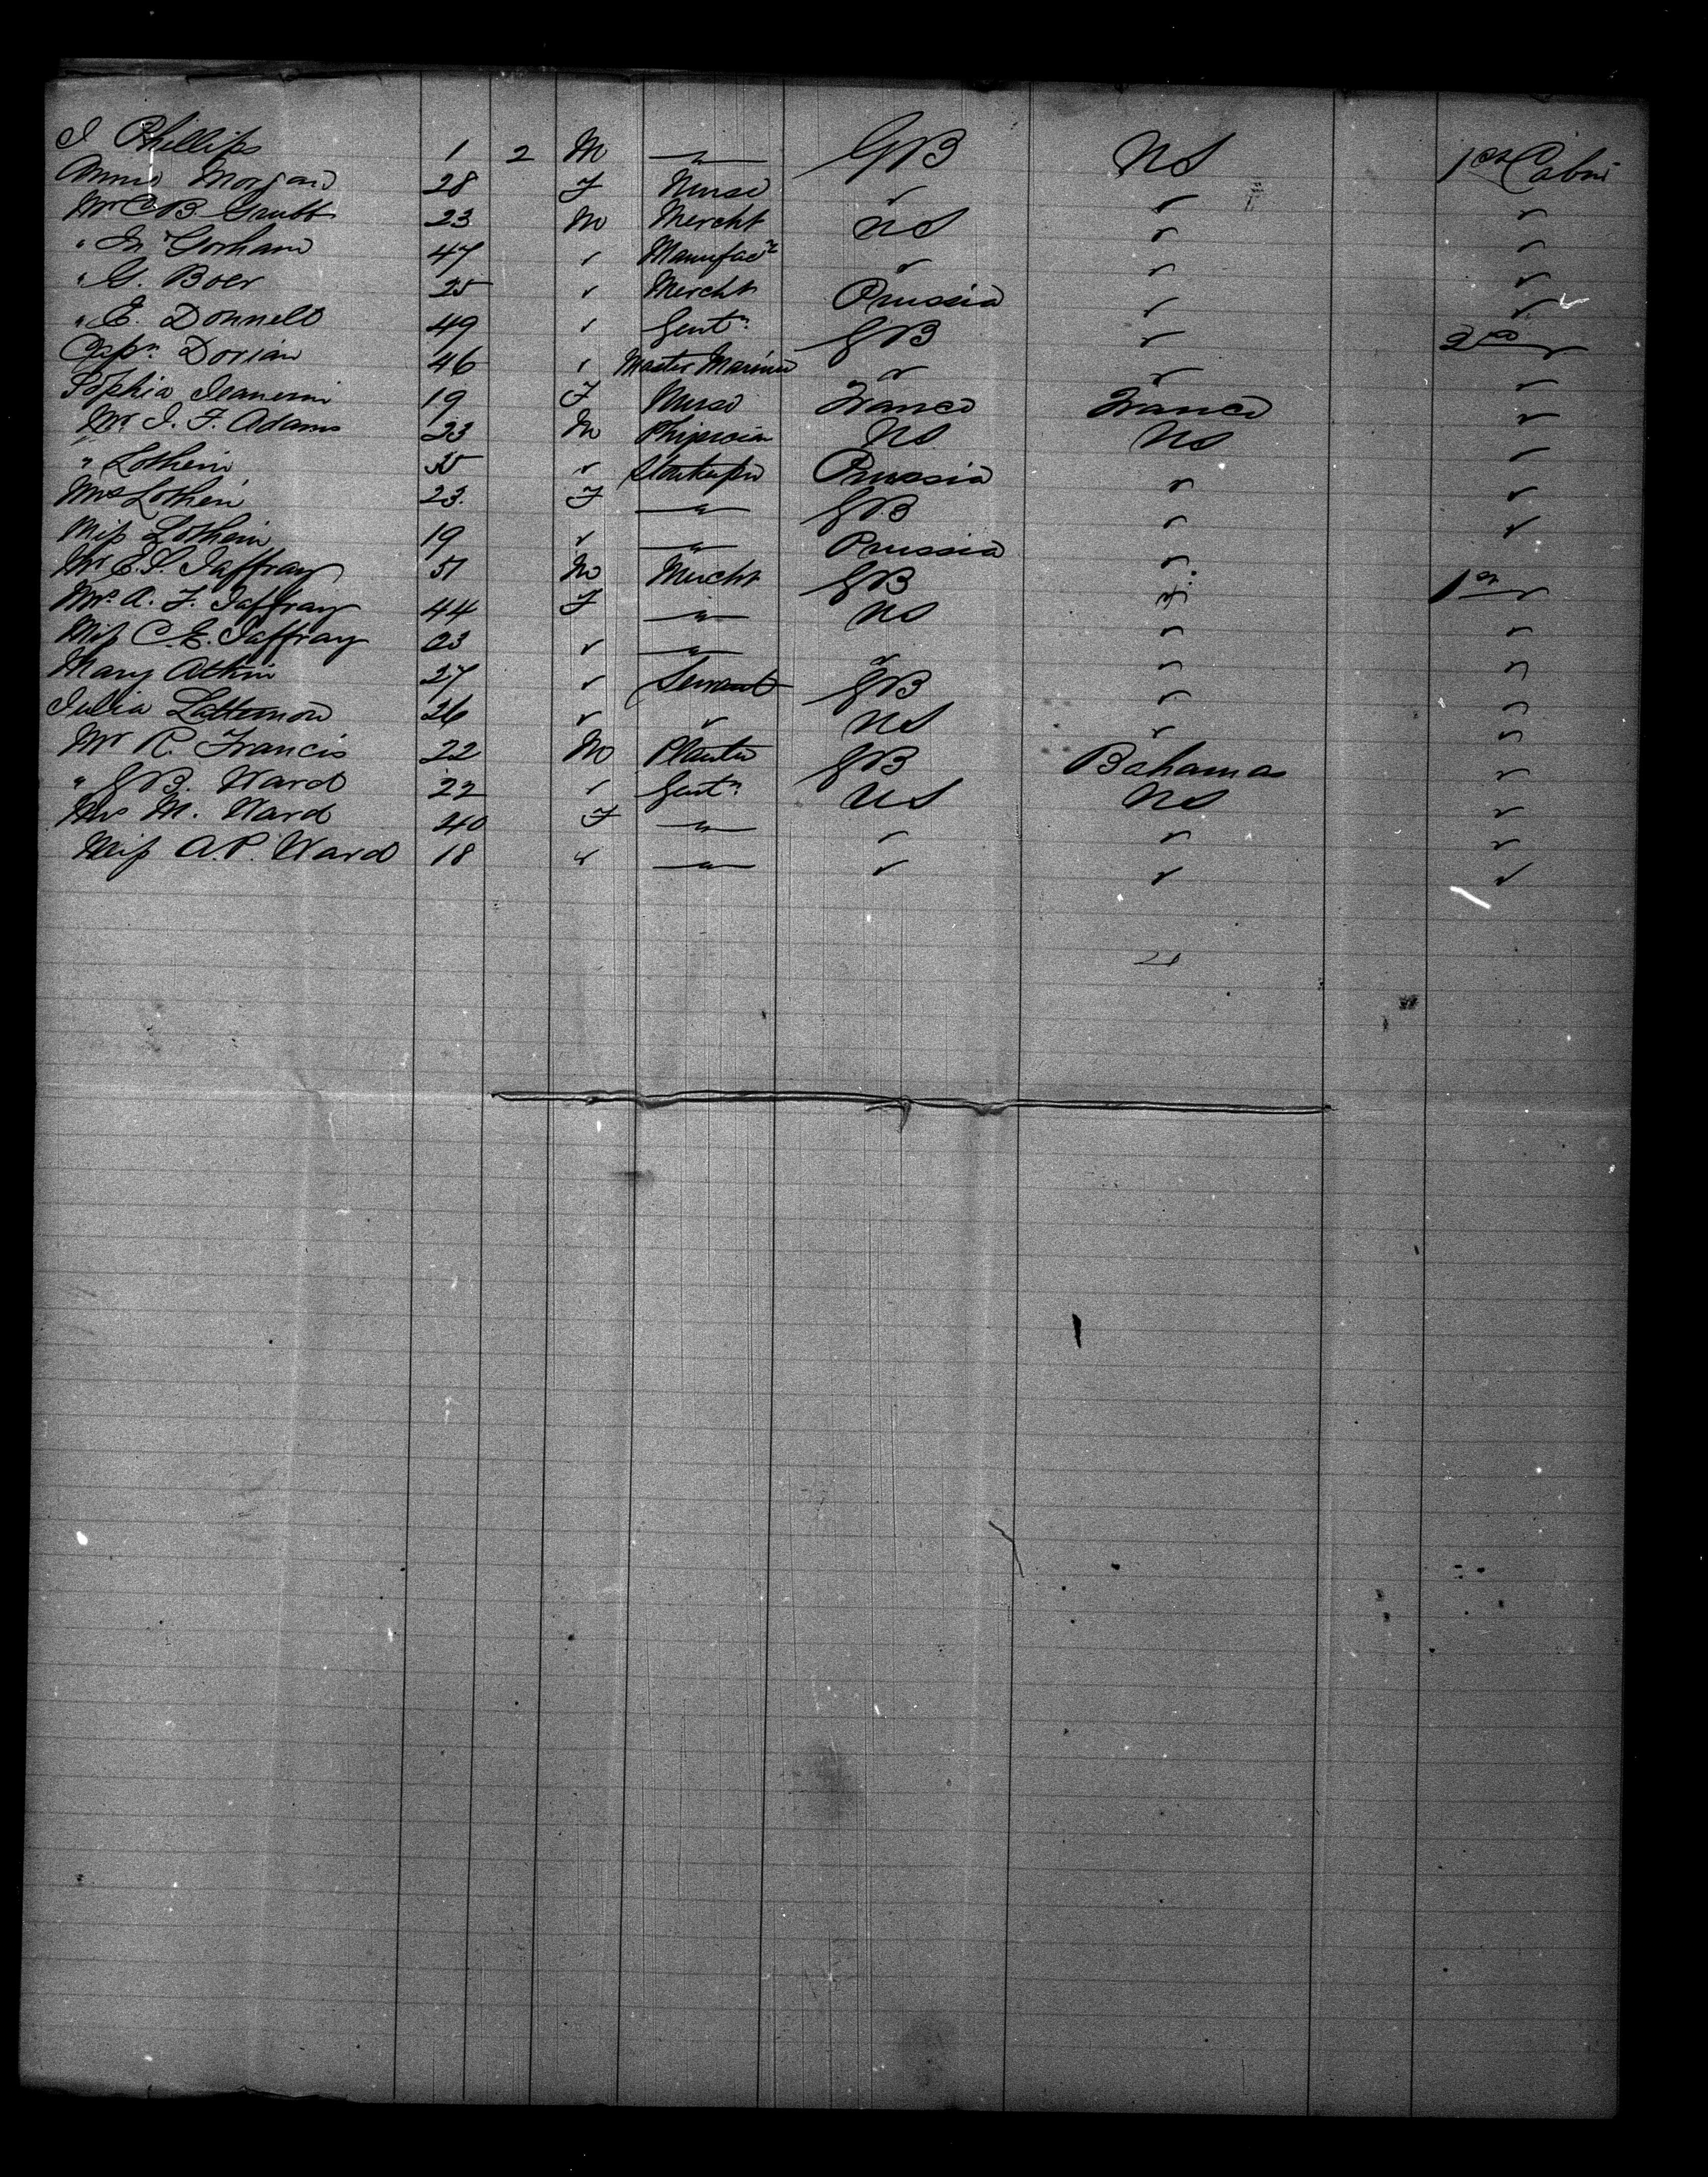 J Phillips 1 2 M — " — GB US 1st Cabin
Annie Morgan 28 F Nurse " " "
Mr C B Grubb 23 M Mercht US " "
" Jn Gorham 47 " Manufacr " " "
" G. Boer 25 " Mercht Prussia " "
" E. Donnell 49 " Gentn GB " 2nd "
Capn Dorian 46 " Master Mariner " " "
Sophia 19 F Nurse France France "
Mr J. F. Adams 23 M Physician US US "
" Lothein 35 " Storekeper Prussia " "
Mrs Lothein 23. F — " — GB " "
Miss Lothein 19 " — " — Prussia "
Mr E. S. Jaffray 51 M Mercht GB " 1st "
Mrs A. F. Jaffray 44 F — " — US " "
Miss C. E. Jaffray 23 " — " — " " "
Mary Atkin 27 " Servant GB " "
Julia 26 " " US " "
Mr R. Francis 22 M Planter GB Bahamas "
" G B. Ward 22 " Gentn US US "
Mrs M. Ward 40 F — " — " " "
Miss A. P. Ward 18 " — " — " " "
21